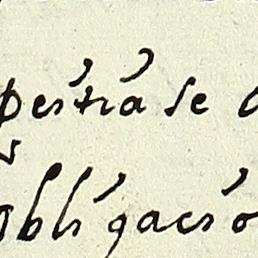 pestia se
obligacio